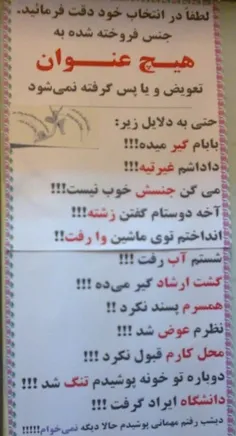 لطفاً در انتخاب خود دقت فرمائید.
جنس فروخته شده به
هیچ عنوان
تعویض و یا پس گرفته نمی‌شود
حتی به دلایل زیر:
بابام گیر میده!!!
داداشم غیرتیه!!!
می گن جنسش خوب نیست!!!
آخه دوستام گفتن زشته!!!
انداختم توی ماشین وا رفت!!
شستم آب رفت !!!
گشت ارشاد گیر می‌ده !!!
همسرم پسند نکرد !!
نظرم عوض شد !!!
محل کارم قبول نکرد !!!
دوباره تو خونه پوشیدم تنگ شد !!!
دانشگاه ایراد گرفت !!!
دیشب رفتم مهمانی پوشیدم حالا دیگه نمی‌خوام!!!!!!